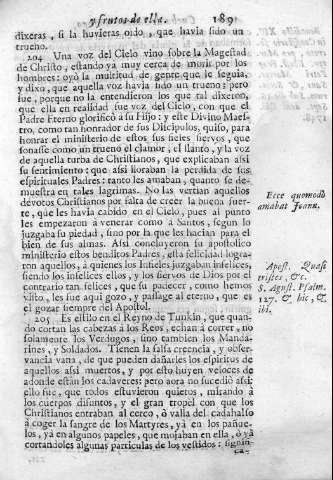 y frutos de ella. 189
dixeras, si la huvieras oido, que havia sido un
trueno.
204 Una voz del Cielo vino sobre la Magestad
de Christo, estando ya muy cerca de morir por los
hombres: oyó la multitud de gente que le seguia,
y dixo, que aquella voz havia sido un trueno; pero
fue, porque no la entendieron los que tal dixeron,
que ella en realidad fue voz del Cielo, con que el
Padre Eterno glorificó à su Hijo: y este Divino Maes-
tro, como tan honrador de sus Discipulos, quiso, para
honrar el ministerio de estos sus fieles siervos, que
sonasse como un trueno el clamor, el llanto, y la voz
de aquella turba de Christianos, que explicaban assi
su sentimiento; que assi lloraban la perdida de sus
espirituales Padres: tanto les amaban, quanto se de-
muestra en tales lagrimas. No las vertian aquellos
devotos Christianos por falta de creer la buena suer-
te, que les havia cabido en el Cielo, pues al punto
les empezaron à venerar como à Santos, segun lo
juzgaba su piedad, sino por la que les hacian para el
bien de sus almas. Assi concluyeron su apostolico
ministerio estos benditos Padres, esta felicidad logra-
ron aquellos, à quienes los Infieles juzgaban infelices,
siendo los infelices ellos, y los siervos de Dios por el
contrario tan felices, que su padecer, como hemos
visto, les fue aqui gozo, y passage al eterno, que es
el gozar siempre del Apostol.
205 Es estilo en el Reyno de Tunkin, que quan-
do cortan las cabezas à los Reos, echan à correr, no
solamente los Verdugos, sino tambien los Manda-
rines, y Soldados. Tienen la falsa creencia, y obser-
vancia vana, de que pueden dañarles los espiritus de
aquellos assi muertos, y por esto huyen veloces de
adonde están los cadaveres; pero aora no sucedió assi;
ello fue, que todos estuvieron quietos, mirando à
los cuerpos difuntos, y el gran tropel con que los
Christianos entraban al cerco, ò valla del cadahalso
à coger la sangre de los Martyres, yà en los pañue-
los, yà en algunos papeles, que mojaban en ella, ò yà
cortandoles algunas particulas de los vestidos: siguie-
Ecce quomodò
amabat Jeanu.
Apost. Quasi
tristes, &c.
S. Agust. Psalm.
127. & hic, &
ibi.